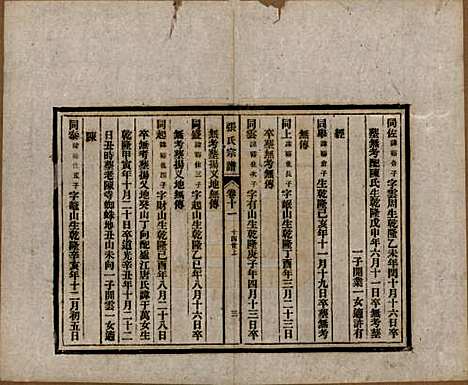 同佐 諱福春子 字雲周生乾隆乙未年閏十月十六日卒
葬無考配陳氏生乾隆戊申年六月十一日卒無考葬
一子開業一女適許有
經
同舉 諱福倉子 生乾隆己亥年十一月十九日卒葬無考
無傳
同上 諱福佐長子 字峻山生乾隆丁酉年三月二十三日
卒葬無考無傳
同雲 諱福佐次子 字有山生乾隆庚子年四月十三日卒
張氏宗譜 卷十一 十四世上 三
無考葬揚叉地無傳
同盛 諱福佐三子 字起山生乾隆乙巳年八月十六日卒
無考葬揚叉地無傳
同起 諱福佐四子 字財山生乾隆己酉年八月二十八日
卒無考葬揚叉地癸山丁向配嚴江唐氏諱于萬女生
乾隆甲寅年十月二十日卒道光辛丑年十月二十二
日丑時葬老陳寺蜘蛛地丑山未向一子開雲一女適
陳
同泰 諱福佐五子 字峻山生乾隆辛亥年十二月初五日